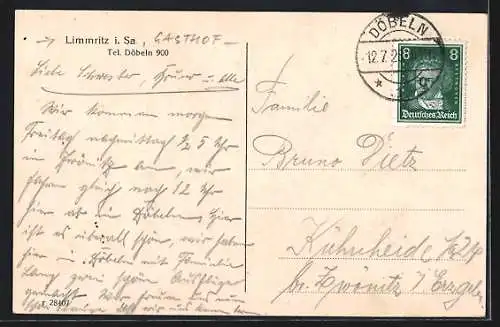 → Limmritz i. Sa, GASTHOF –
Tel. Döbeln 900
Liebe Schwester, Heiner u. alle
Wir kommen morgen
Freitag nachmittag ½ 5 Uhr
in Zwönitz an, wir
fahren gleich nach 12 Uhr
hier ab in Döbeln, hier
ist es überall schön, wir haben
hier in Döbeln mit Familie
Lang ganz schöne Ausflüge
gemacht. Wir freuen uns nun
schon
T 28407
DÖBELN
12.7.2
8 8
Deutsches Reich
Familie
Bruno Dietz
Kühnheide
bei Zwönitz i/ Erzgeb.